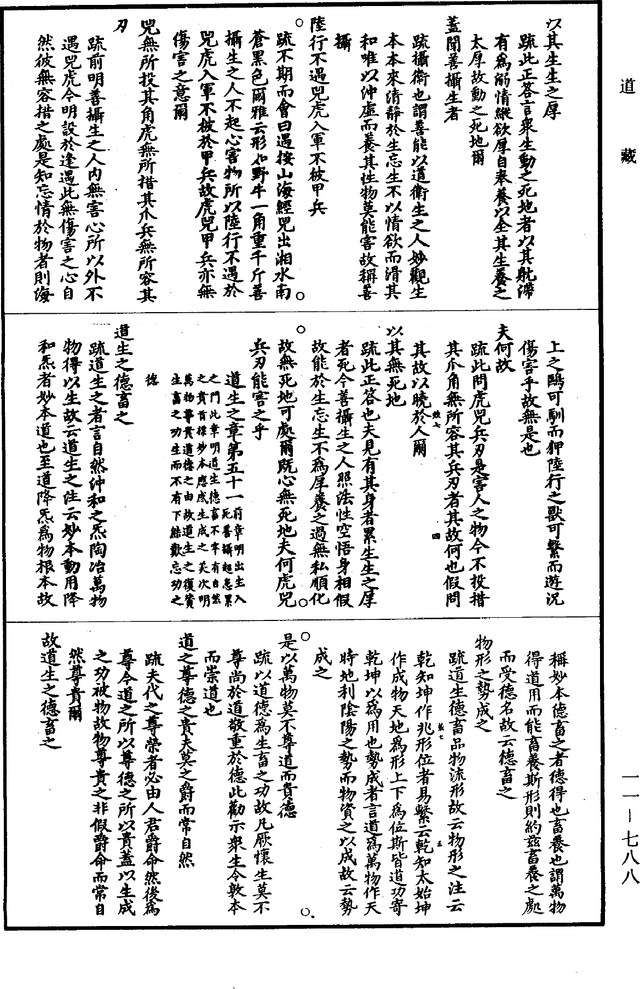 道藏
以其生生之厚
疏此正答言衆生動之死地者以其躭滯
有爲飾情縱欲厚自奉養以全其生養之
太厚故動之死地爾
蓋聞善攝生者
疏攝衛也謂善能以道衛生之人妙觀生
本本來清靜於生忘生不以情欲而滑其
和唯以沖虛而養其性物莫能害故稱善
攝
陸行不遇兕虎入軍不被甲兵
疏不期而會曰遇按山海經兕出湘水南
蒼黑色爾雅云形似野牛一角重千斤善
攝生之人不起心害物所以陸行不遇於
兕虎入軍不被於甲兵故虎兕甲兵亦無
傷害之意爾
兕無所投其角虎無所措其爪兵無所容其
刃
疏前明善攝生之人内無害心所以外不
遇兕虎今明設於逢遇此無傷害之心自
然彼無容措之處是知忘情於物者則海
上之鷗可馴而狎陸行之獸可繫而遊況
傷害乎故無是也
夫何故
疏此問虎兕兵刃是害人之物今不投措
其爪角無所容其兵刃者其故何也假問
其故以曉於人爾
以其無死地
疏此正答也夫見有其身者累生生之厚
者死今善攝生之人照法性空悟身相假
故能於生忘生不爲厚養之過無私順化
故無死地可處爾既心無死地夫何虎兕
兵刃能害之乎
道生之章第五十一
前章明出生入死善攝起忘累
之門此章明道生德畜不宰有自然
之貴首標妙本應感生成之美次明
萬物尊貴道德之由故道生之復資
生畜之功生而不有下絲歎忘功之
德
道生之德畜之
疏道生之者言自然沖和之炁陶冶萬物
物得以生故云道生之注云妙本動用降
和炁者妙本道也至道降炁爲物根本故
稱妙本德畜之者德得也畜養也謂萬物
得道用而能畜養斯形則約茲畜養之處
而受德名故云德畜之
物形之勢成之
疏道生德畜品物流形故云物形之注云
乾知坤作兆形位者易繫云乾知太始坤
作成物天地爲形上下爲位斯皆道功寄
乾坤以爲用也勢成者言道爲萬物作天
時地利陰陽之勢而物資之以成故云勢
成之
是以萬物莫不尊道而貴德
疏以道德爲生畜之功故凡厥懷生莫不
尊尚於道敬重於德此勸示衆生令敦本
而崇道也
道之尊德之貴夫莫之爵而常自然
疏夫代之尊榮者必由人君爵命然後爲
尊今道之所以尊德之所以貴蓋以生成
之功被物故物尊貴之非假爵命而常自
然尊貴爾
故道生之德畜之
一一—七八八